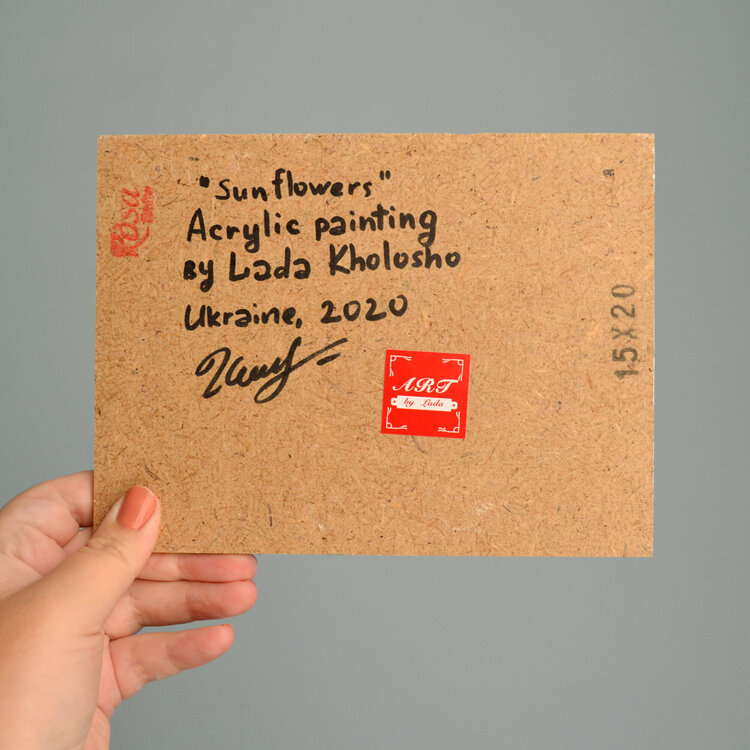 "Sunflowers"
Acrylic painting
By Lada Kholosho
Ukraine, 2020
ART
by Lada
Rosa
15X20